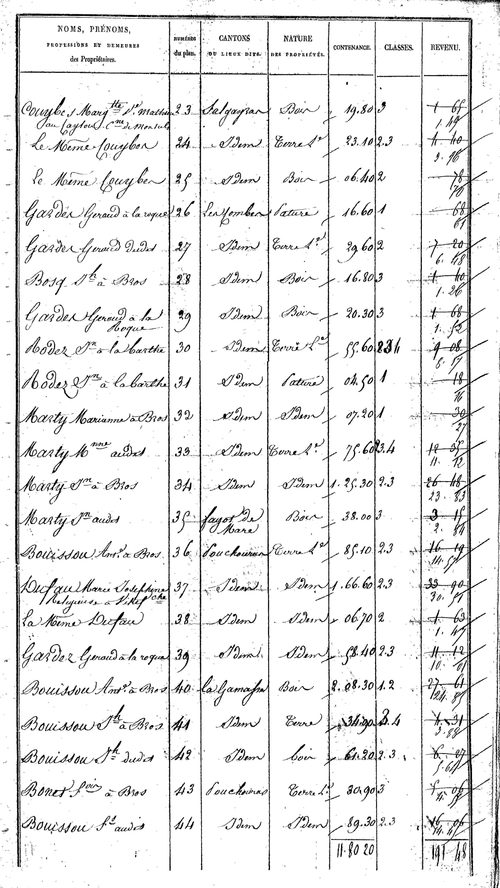 NOMS, PRÉNOMS, PROFESSIONS ET DEMEURES des Propriétaires. NUMÉROS du plan. CANTONS OU LIEUX DITS. NATURE DES PROPRIÉTÉS. CONTENANCE. CLASSES. REVENU.
Couybes Marg.tte 23 Salgayran Bois 19.80 3 1 65
1. 49
Le Même Couybes 24 Idem Terre l.e 23.10 2.3 4 40
3. 96
Le Même Couybes 25 Idem Bois 06.40 2 78
70
Gardes Geraud à la roque 26 Les Combes Pature 16.60 1 68
61
Gardes Geraud dudes 27 Idem Terre l.e 29.60 2 7 20
6. 48
Bosq J.h à Bros 28 Idem Bois 16.80 3 1 40
1. 26
Gardes Geraud à la Roque 29 Idem Bois 20.30 3 1 68
1. 52
Rodez J.n à la barthe 30 Idem Terre l.e 55.60 9 08
Rodez J.n à la barthe 31 Idem Pature 04.50 1 18
16
Marty Marianne à Bros 32 Idem Idem 07.20 1 30
27
Marty M.nne audes 33 Idem Terre l.e 75.60 3.4 12 35
11. 12
Marty J.n à Bros 34 Idem Idem 1.25.30 2.3 26 48
23. 83
Marty J.n audes 35 fagot de Mare Bois 38.00 3 3 15
2. 84
Bouissou Ant.e à Bros 36 Pouchouras Terre l.e 85.10 2.3 16 19
14. 57
Dufau Marie Josephine Religieuse à 37 Idem Idem 1.66.60 2.3 33 90
30. 51
La Même Dufau 38 Idem Idem 06.70 2 1 63
1. 47
Gardez Geraud à la roque 39 Idem Idem 58.40 2.3 11 12
10. 01
Bouissou Ant.e à Bros 40 la Gamasse Bois 2.08.30 1.2 27 61
24. 85
Bouissou J.h à Bros 41 Idem Terre 34.90 3.4 4 31
3. 88
Bouissou J.h dudes 42 Idem bois 61.20 2.3 6 27
5. 64
Bonet à Bros 43 Pouchouras Terre l.e 30.90 3 5 06
Bouissou audes 44 Idem Idem 89.30 2.3 16 06
11.80 20 191 48